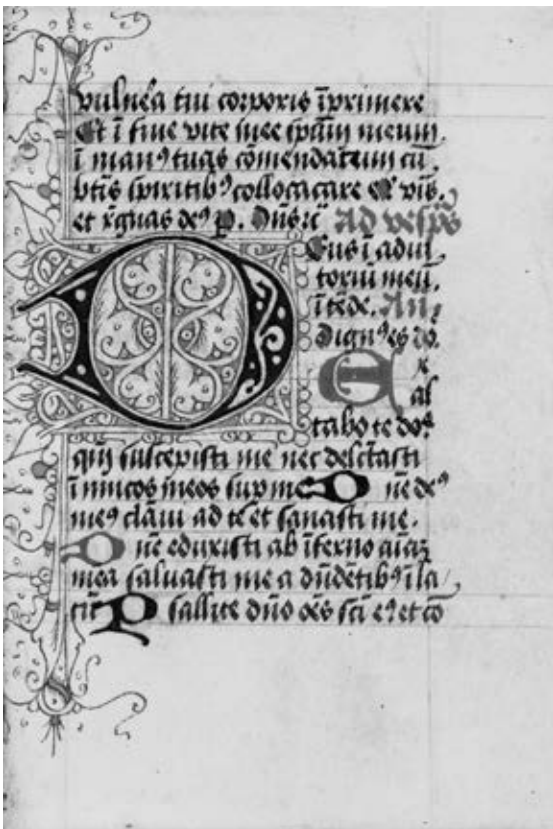 vulnẽa tui corporis ĩprimere
Et ĩ fine vite mee sp̃am meum.
ĩ manꝰ tuas cõmendatum cũ
bt̃is spiritibꝰ collocacare et vis.
et rgnas deꝰ p. Dñs rc̃ Ad vesp̃s
Eus ĩ adui
toriũ meũ.
ĩtẽde. An
Dignꝰ es dõ.
Ex
al
tabo te dõe
qm̃ suscepisti me nec delc̃tasti
ĩnimicos meos sup me Dñe deꝰ
meꝰ clãui ad te et sanasti me.
Dñe eduxisti ab ĩferno aĩaz
mea saluasti me a dñdẽtibꝰ ĩ la
cũ Psallite dño oẽs sc̃i eꝰ et cõ